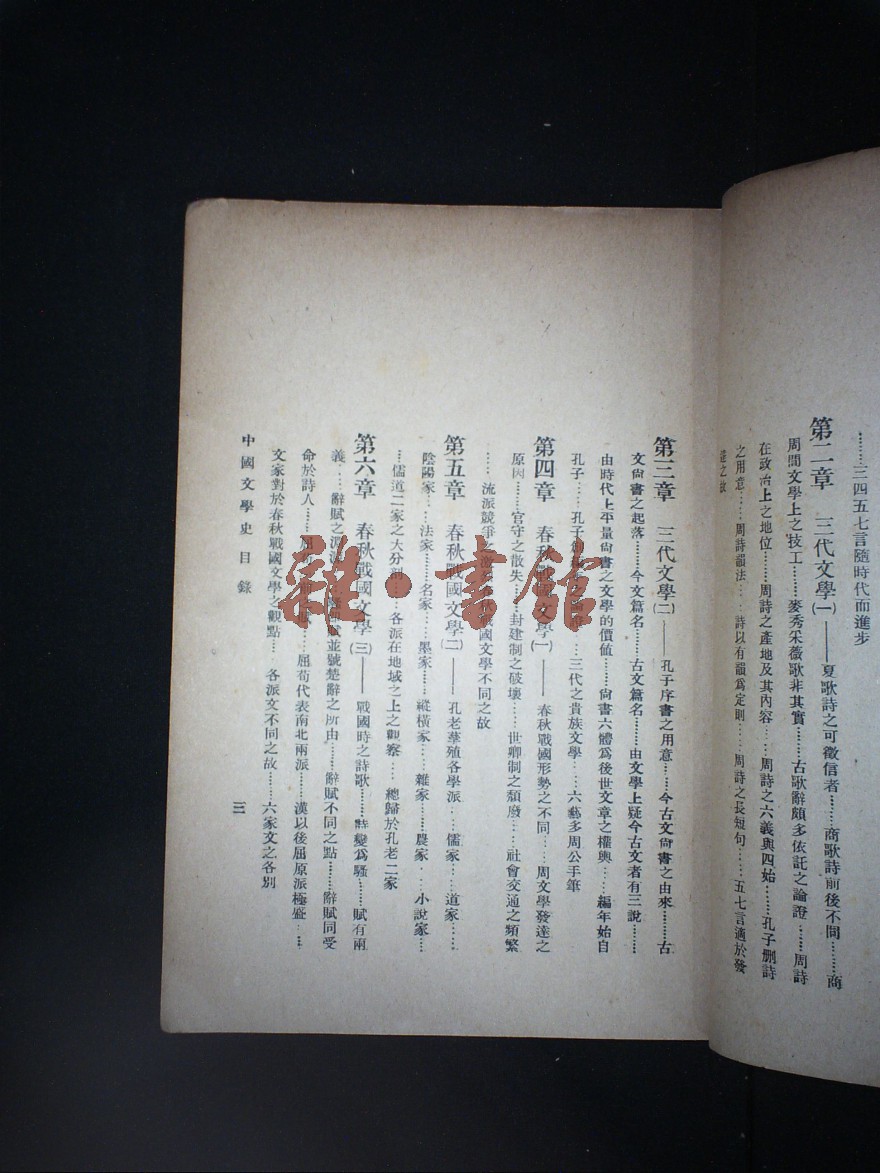 ……三四五七言隨時代而進步
第二章　三代文學㈠——夏歌詩之可徵信者……商歌詩前後不間……商
周間文學上之技工……麥秀采薇歌非其實……古歌辭頗多依託之論證……周詩
在政治上之地位……周詩之產地及其內容……周詩之六義與四始……孔子刪詩
之用意……周詩韻法……詩以有韻爲定則……周詩之長短句……五七言適於發
之故
第三章　三代文學㈡——孔子序書之用意……今古文尙書之由來……古
文尙書之起落……今文篇名……古文篇名……由文學上疑今古文者有三說……
由時代上平量尙書之文學的價値……尙書六體爲後世文章之權輿……編年始自
孔子……孔子……三代之貴族文學……六藝多周公手筆
第四章　春秋戰國文學㈠——春秋戰國形勢之不同……周文學發達之
原因……官守之散失……封建制之破壞……世卿制之頹廢……社會交通之頻繁
……流派競爭之……戰國文學不同之故
第五章　春秋戰國文學㈡——孔老孳殖各學派……儒家……道家……
陰陽家……法家……名家……墨家……縱橫家……雜家……農家……小說家……
…儒道二家之大分剖……各派在地域之上之觀察……總歸於孔老二家
第六章　春秋戰國文學㈢——戰國時之詩歌……詩變爲騷……賦有兩
義……辭賦之源流……賦並號楚辭之所由……辭賦不同之點……辭賦同受
命於詩人……屈荀代表南北兩派……漢以後屈原派極盛……
文家對於春秋戰國文學之觀點……各派文不同之故……六家文之各別
中國文學史　目錄
三
雜·書館